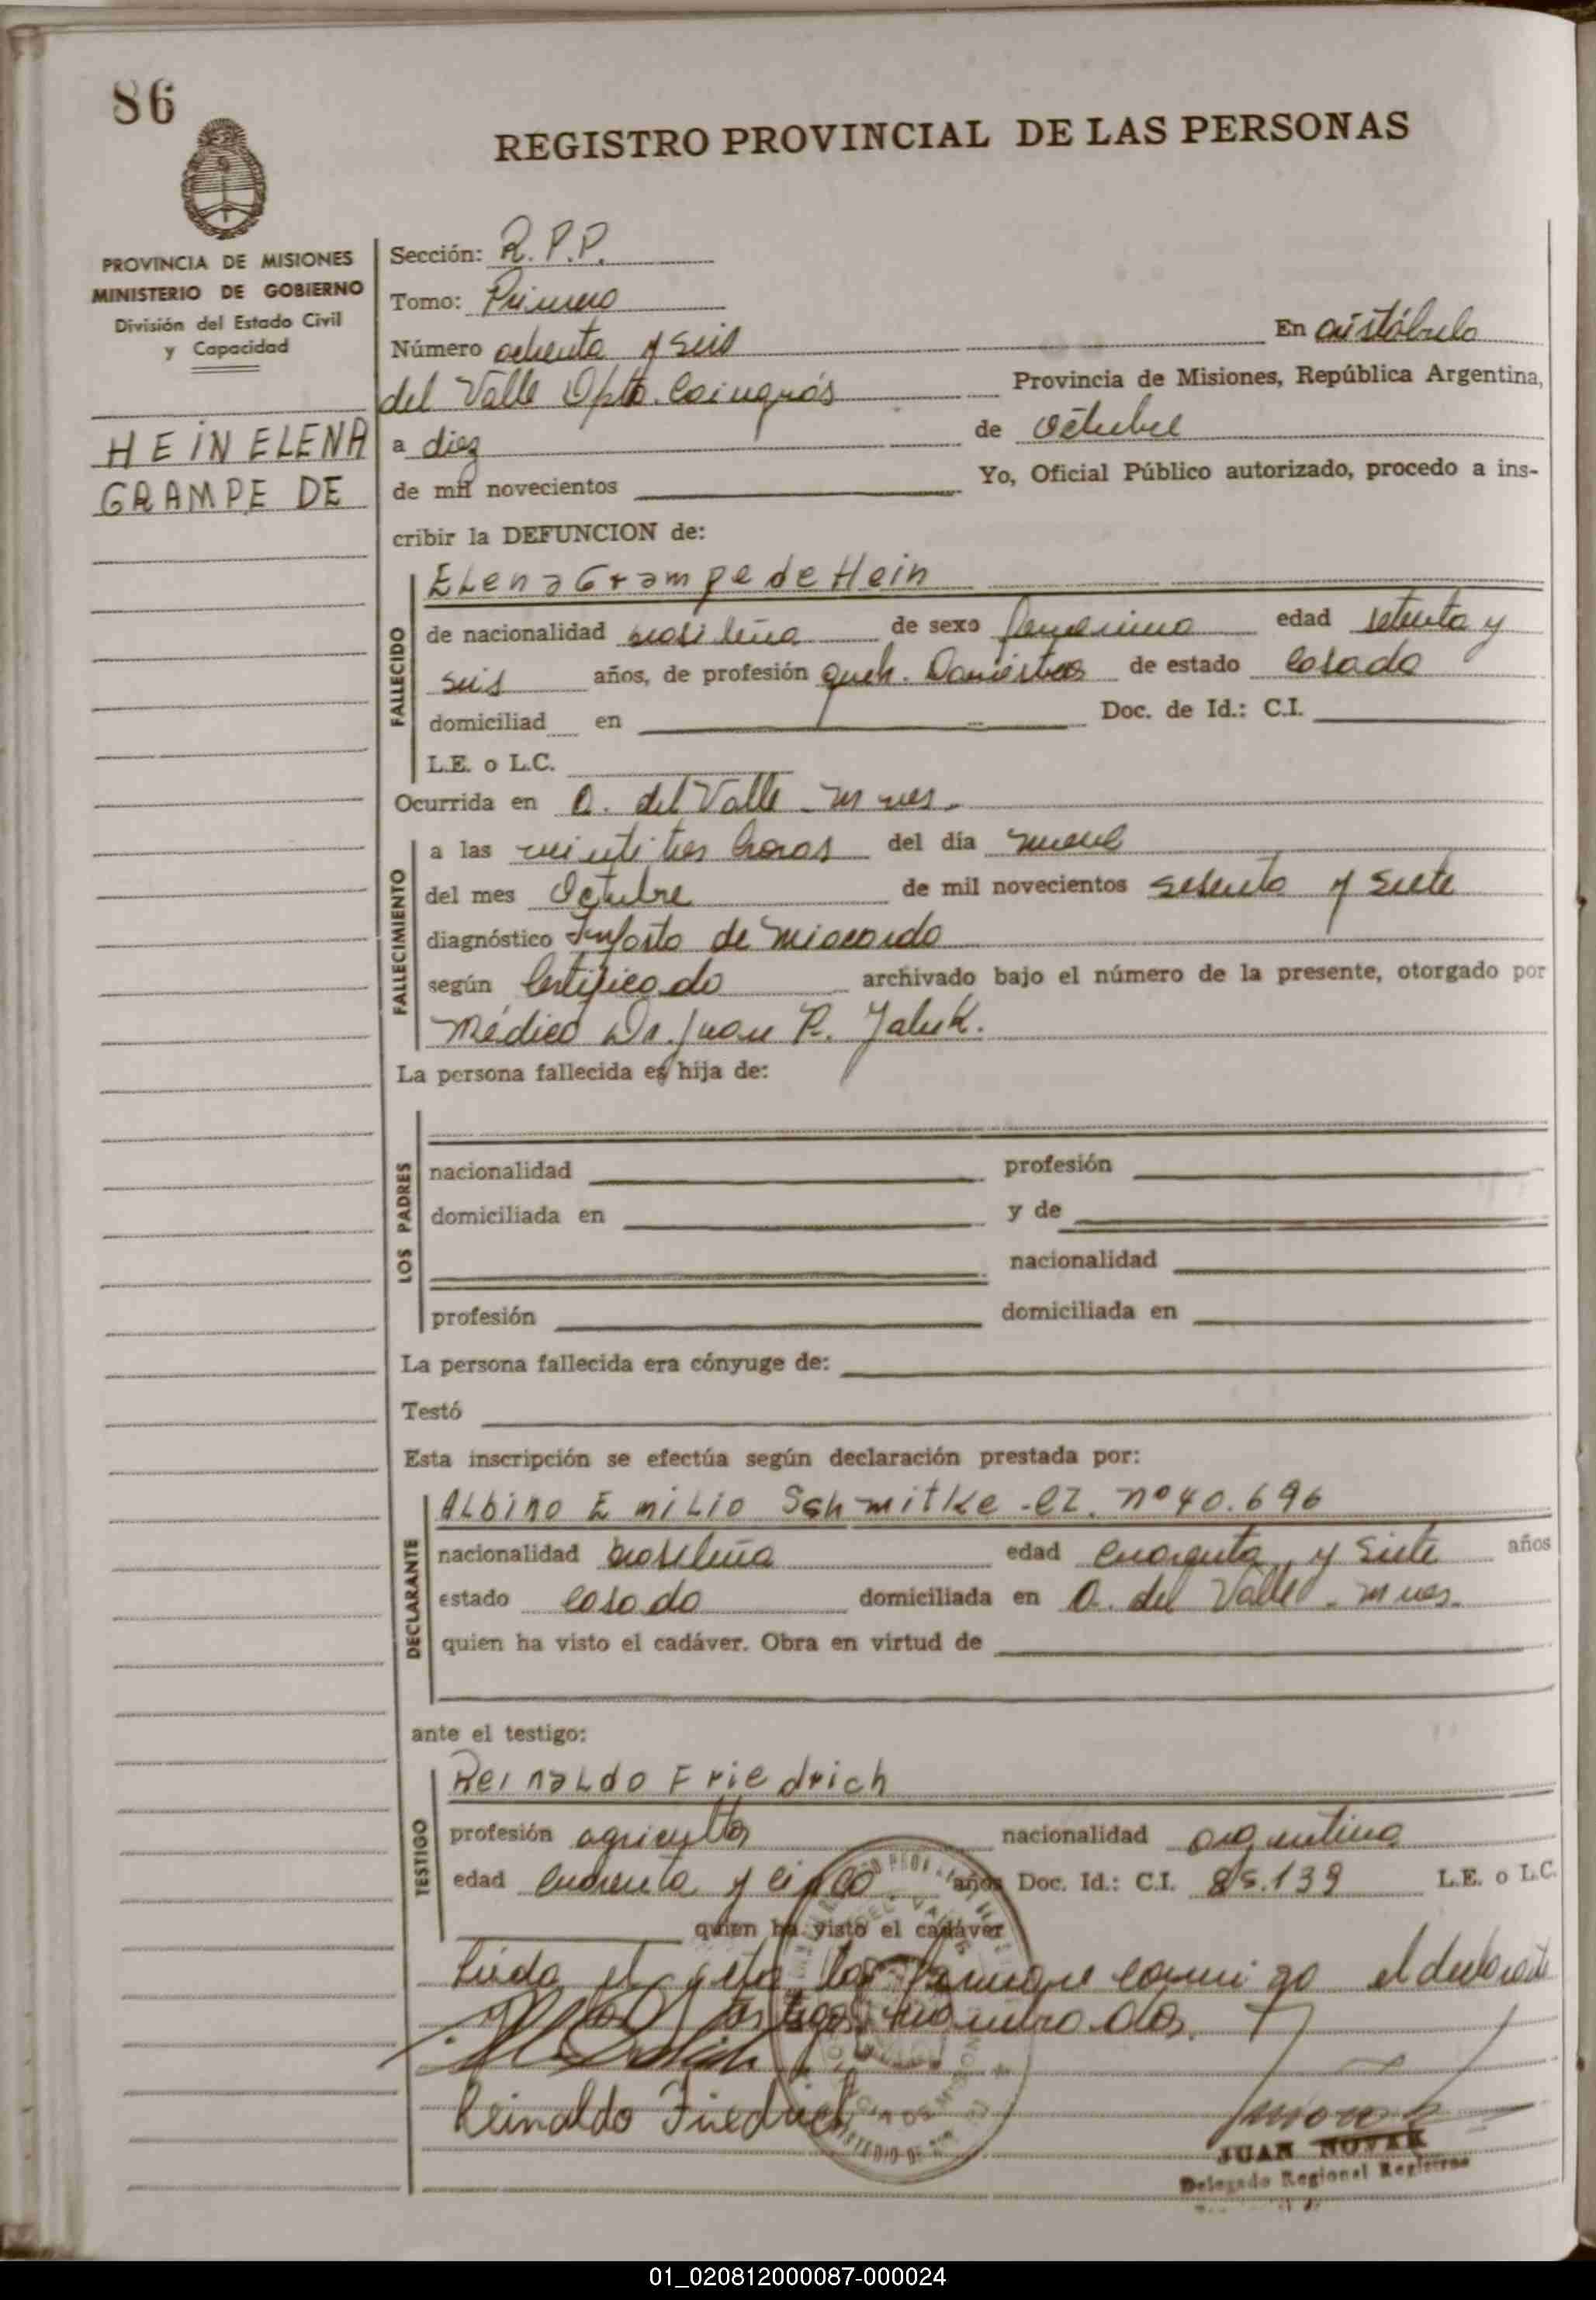 86
REGISTRO PROVINCIAL DE LAS PERSONAS
PROVINCIA DE MISIONES
MINISTERIO DE GOBIERNO
División del Estado Civil
y Capacidad
HEIN ELENA
GRAMPE DE
Sección: R.P.P.
Tomo: Primero
Número ochenta y seis En aristóbulo
del Valle Dpto. Cainguás Provincia de Misiones, República Argentina,
a diez de Octubre
de mil novecientos Yo, Oficial Público autorizado, procedo a ins-
cribir la DEFUNCION de:
FALLECIDO
Elena Grampe de Hein
de nacionalidad brasileña de sexo femenino edad setenta y
seis años, de profesión queh. Domésticos de estado Casada
domiciliad en Doc. de Id.: C.I.
L.E. o L.C.
Ocurrida en A. del Valle - Mnes.
FALLECIMIENTO
a las veintitres horas del día nueve
del mes Octubre de mil novecientos setenta y siete
diagnóstico Infarto de miocardo
según Certificado archivado bajo el número de la presente, otorgado por
Médico Dr. Juan R. Jaluk.
La persona fallecida es hija de:
LOS PADRES
nacionalidad profesión
domiciliada en y de
nacionalidad
profesión domiciliada en
La persona fallecida era cónyuge de:
Testó
Esta inscripción se efectúa según declaración prestada por:
DECLARANTE
Albino Emilio Schmitke - CI. nº 40.696
nacionalidad brasileña edad cuarenta y siete años
estado casado domiciliada en A. del Valle - Mnes.
quien ha visto el cadáver. Obra en virtud de
ante el testigo:
TESTIGO
Reinaldo Friedrich
profesión agricultor nacionalidad argentina
edad cuarenta y cinco años Doc. Id.: C.I. 85.139 L.E. o L.C.
quien ha visto el cadáver
Leida el acta la firman conmigo el declarante
y el testigo
Reinaldo Friedrich
JUAN NOVAK
Delegado Regional Registros
01_020812000087-000024